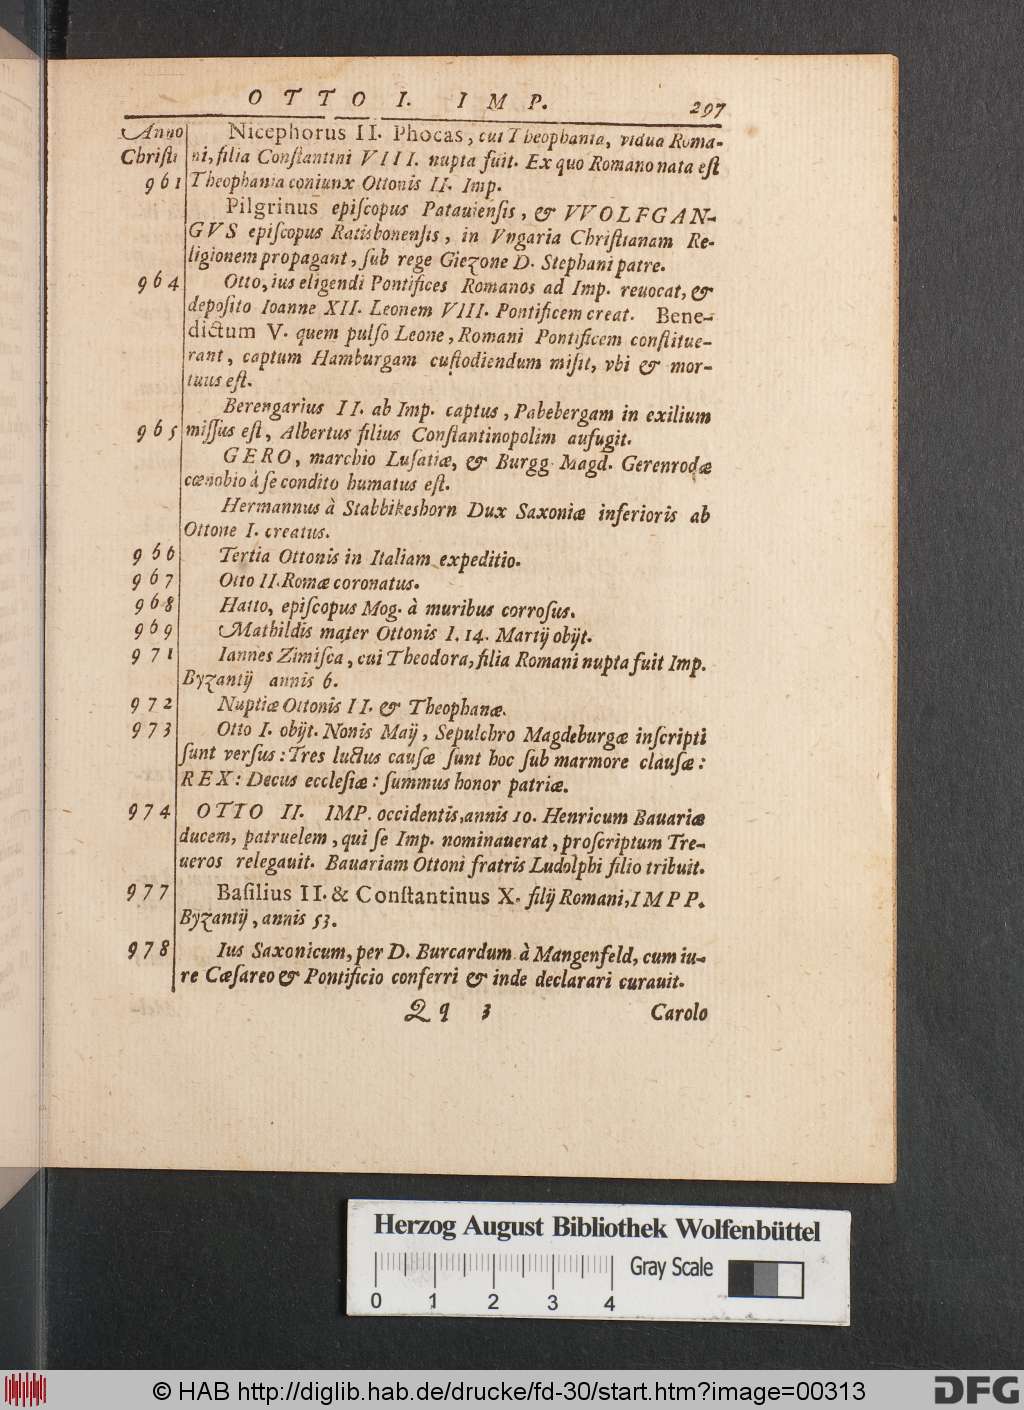 OTTO I. IMP. 297
Anno Nicephorus II. Phocas, cui Theophania, vidua Roma-
Christi ni, filia Constantini VIII. nupta fuit. Ex quo Romano nata est
961 Theophania coniunx Ottonis II. Imp.
Pilgrinus episcopus Patauiensis, & VVOLFGAN-
GVS episcopus Ratisbonensis, in Vngaria Christianam Re-
ligionem propagant, sub rege Giezone D. Stephani patre.
964 Otto, ius eligendi Pontifices Romanos ad Imp. reuocat, &
deposito Ioanne XII. Leonem VIII. Pontificem creat. Bene-
dictum V. quem pulso Leone, Romani Pontificem constitue-
rant, captum Hamburgam custodiendum misit, vbi & mor-
tuus est.
Berengarius II. ab Imp. captus, Pabebergam in exilium
965 missus est, Albertus filius Constantinopolim aufugit.
GERO, marchio Lusatiæ, & Burgg. Magd. Gerenrodæ
cœnobio à se condito humatus est.
Hermannus à Stabbikeshorn Dux Saxoniæ inferioris ab
Ottone I. creatus.
966 Tertia Ottonis in Italiam expeditio.
967 Otto II. Romæ coronatus.
968 Hatto, episcopus Mog. à muribus corrosus.
969 Mathildis mater Ottonis I. 14. Martij obijt.
971 Iannes Zimisca, cui Theodora, filia Romani nupta fuit Imp.
Byzantij annis 6.
972 Nuptiæ Ottonis II. & Theophanæ.
973 Otto I. obijt. Nonis Maij, Sepulchro Magdeburgæ inscripti
sunt versus: Tres luctus causæ sunt hoc sub marmore clausæ:
REX: Decus ecclesiæ: summus honor patriæ.
974 OTTO II. IMP. occidentis, annis 10. Henricum Bauariæ
ducem, patruelem, qui se Imp. nominauerat, proscriptum Tre-
ueros relegauit. Bauariam Ottoni fratris Ludolphi filio tribuit.
977 Basilius II. & Constantinus X. filij Romani, IMPP.
Byzantij, annis 53.
978 Ius Saxonicum, per D. Burcardum à Mangenfeld, cum iu-
re Cæsareo & Pontificio conferri & inde declarari curauit.
Qq 3 Carolo
Herzog August Bibliothek Wolfenbüttel
Gray Scale
0 1 2 3 4
© HAB http://diglib.hab.de/drucke/fd-30/start.htm?image=00313
DFG